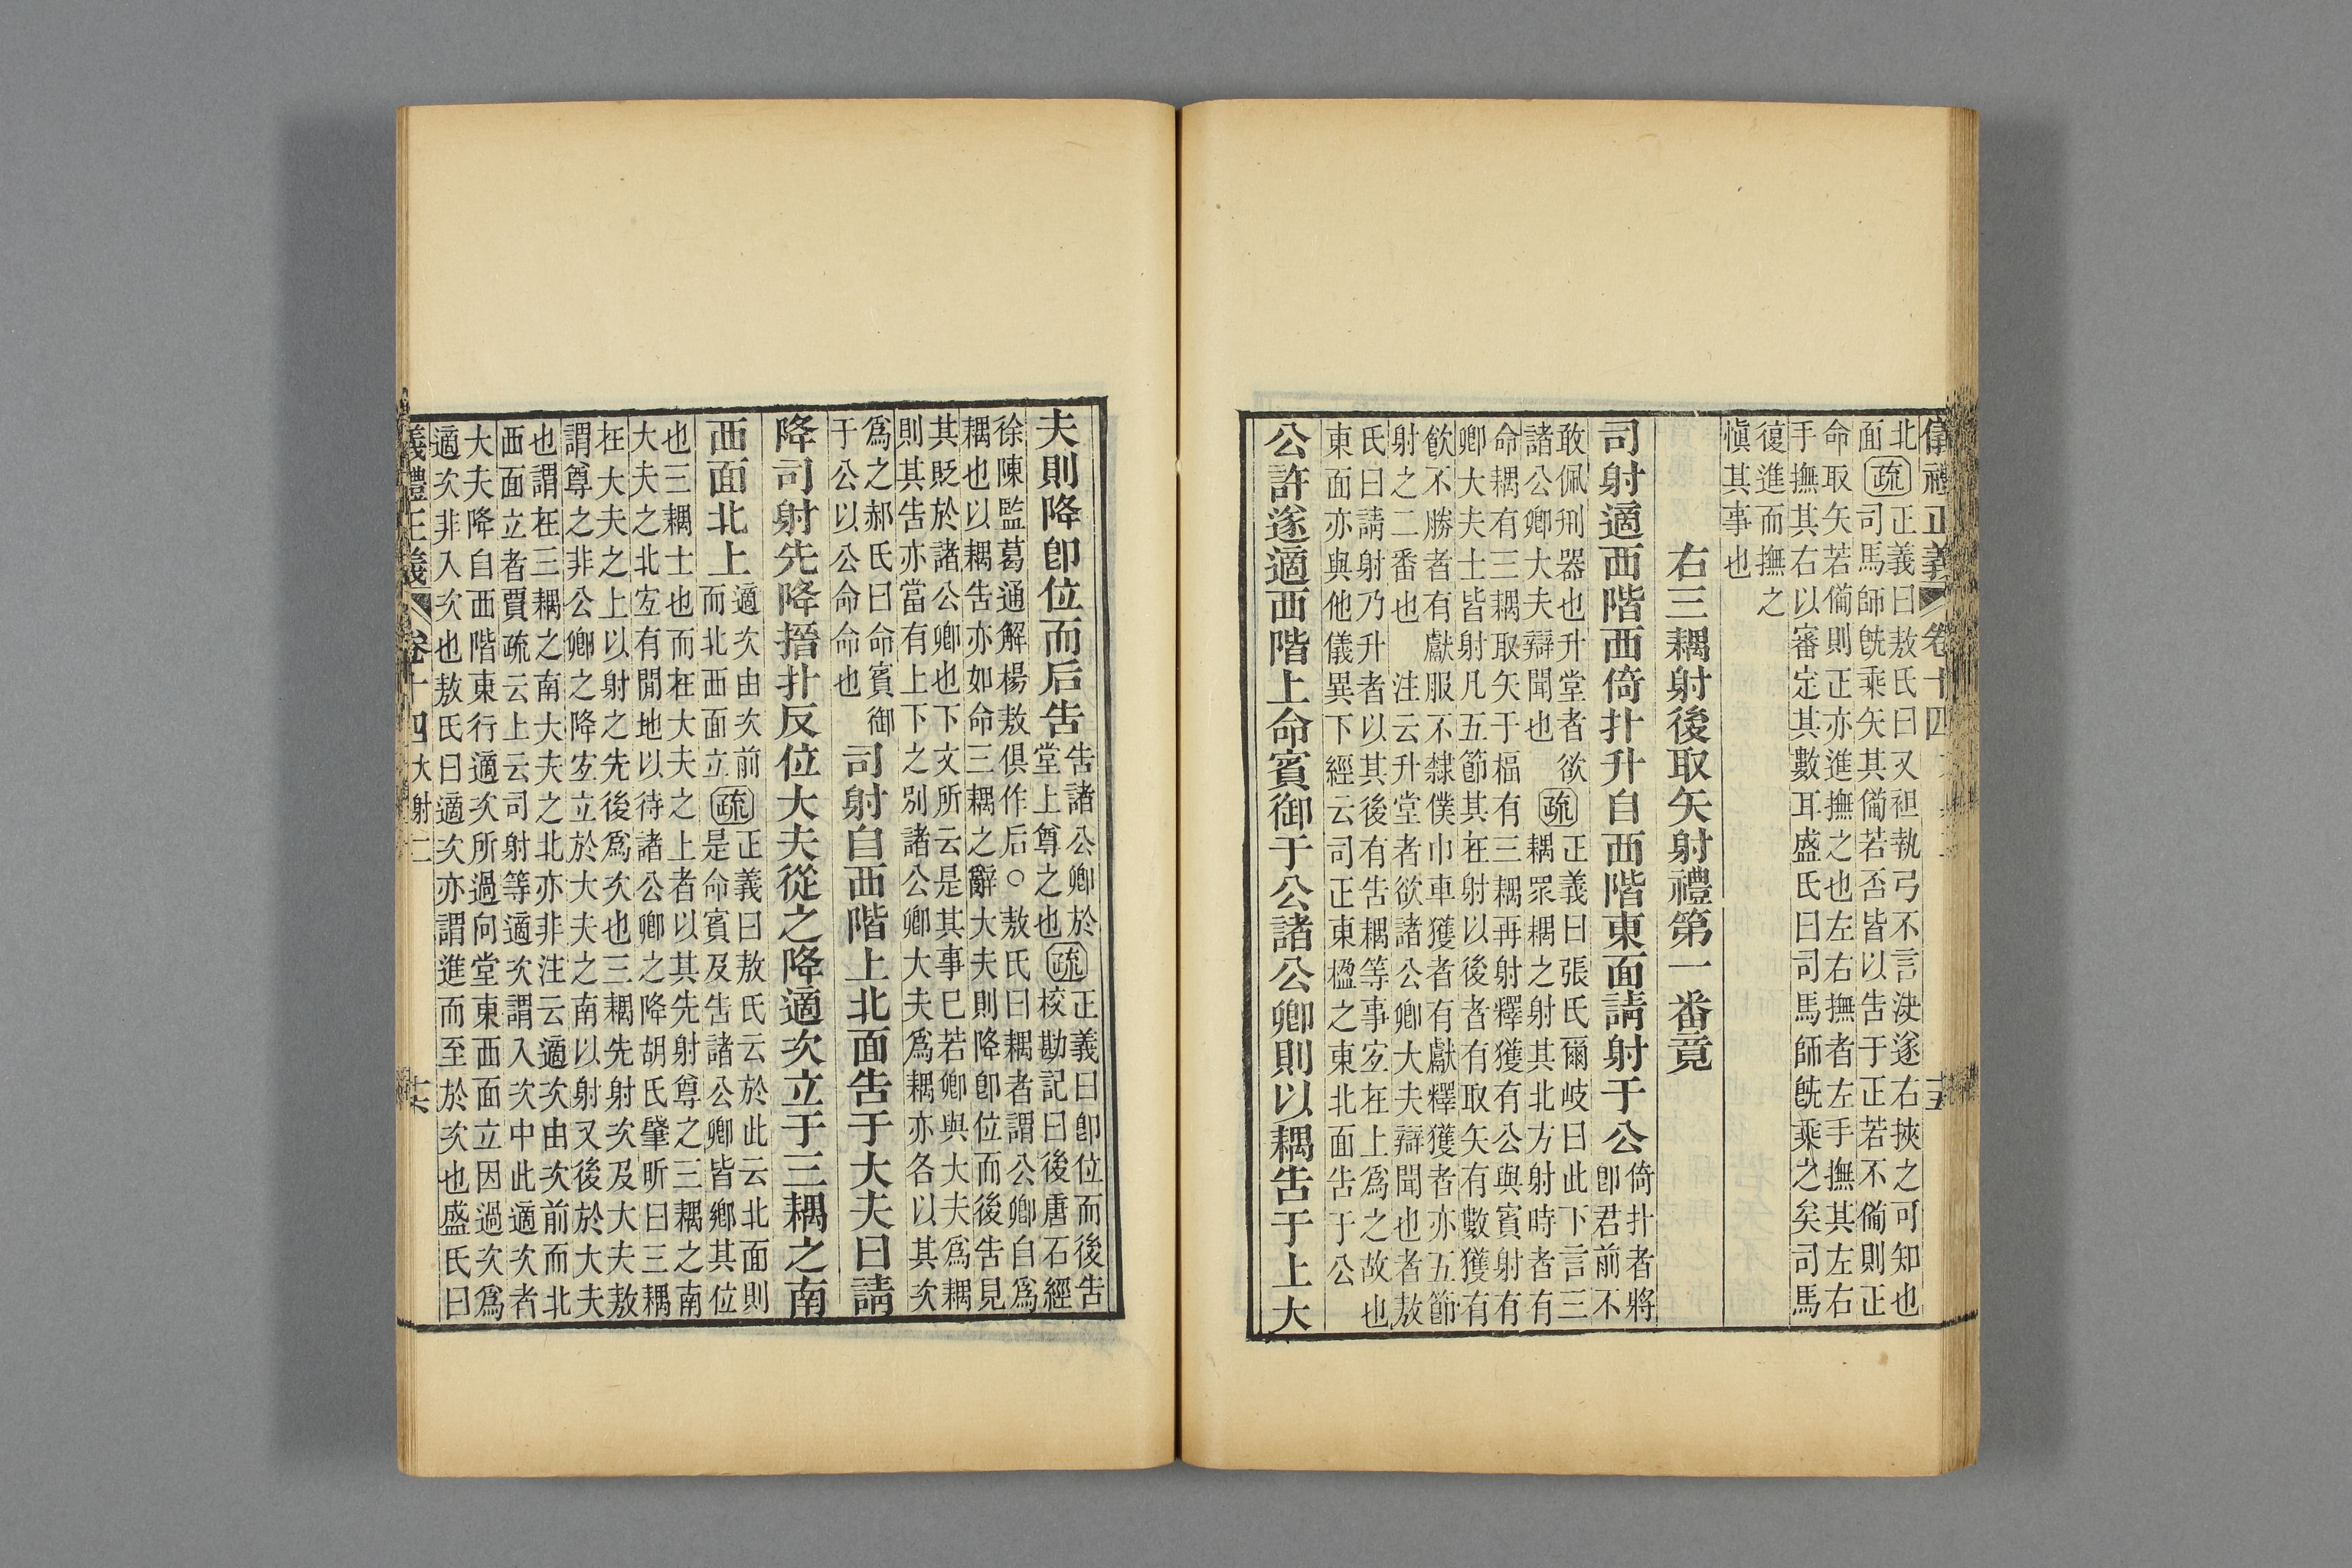 儀禮正義 卷十四
北
面疏正義曰敖氏曰又袒執弓不言決遂右挾之可知也
司馬師旣乘矢其僃若否皆以告于正若不僃則正
命取矢若僃則正亦進撫之也左右撫者左手撫其左右
手撫其右以審定其數耳盛氏曰司馬師旣乘之矣司馬
復進而撫之
愼其事也
右三耦射後取矢射禮第一番竟
司射適西階西倚扑升自西階東面請射于公
倚扑者將
卽君前不
敢佩刑器也升堂者欲
諸公卿大夫辯聞也
疏正義曰張氏爾岐曰此下言三
耦眾耦之射其北方射時者有
命耦有三耦取矢于楅有三耦再射釋獲有公與賓射有
卿大夫士皆射凡五節其在射以後者有取矢有數獲有
飮不勝者有獻服不隸僕巾車獲者有獻釋獲者亦五節
射之二番也 注云升堂者欲諸公卿大夫辯聞也者敖
氏曰請射乃升者以其後有告耦等事宐在上爲之故也
東面亦與他儀異下經云司正東楹之東北面告于公
公許遂適西階上命賓御于公諸公卿則以耦告于上大
夫則降卽位而后告
告諸公卿於
堂上尊之也
疏正義曰卽位而後告
校勘記曰後唐石經
徐陳監葛通解楊敖俱作后○敖氏曰耦者謂公卿自爲
耦也以耦告亦如命三耦之辭大夫則降卽位而後告見
其貶於諸公卿也下文所云是其事已若卿與大夫爲耦
則其告亦當有上下之別諸公卿大夫爲耦亦各以其次
爲之郝氏曰命賓御
于公以公命命也
司射自西階上北面告于大夫曰請
降司射先降搢扑反位大夫從之降適次立于三耦之南
西面北上
適次由次前
而北西面立
疏正義曰敖氏云於此云北面則
是命賓及告諸公卿皆鄉其位
也三耦士也而在大夫之上者以其先射尊之三耦之南
大夫之北宐有閒地以待諸公卿之降胡氏肇昕曰三耦
在大夫之上以射之先後爲次也三耦先射次及大夫敖
謂尊之非公卿之降宐立於大夫之南以射又後於大夫
也謂在三耦之南大夫之北亦非注云適次由次前而北
西面立者賈疏云上云司射等適次謂入次中此適次者
大夫降自西階東行適次所過向堂東西面立因過次爲
適次非入次也敖氏曰適次亦謂進而至於次也盛氏曰
義禮正義 卷十四大射二 十六